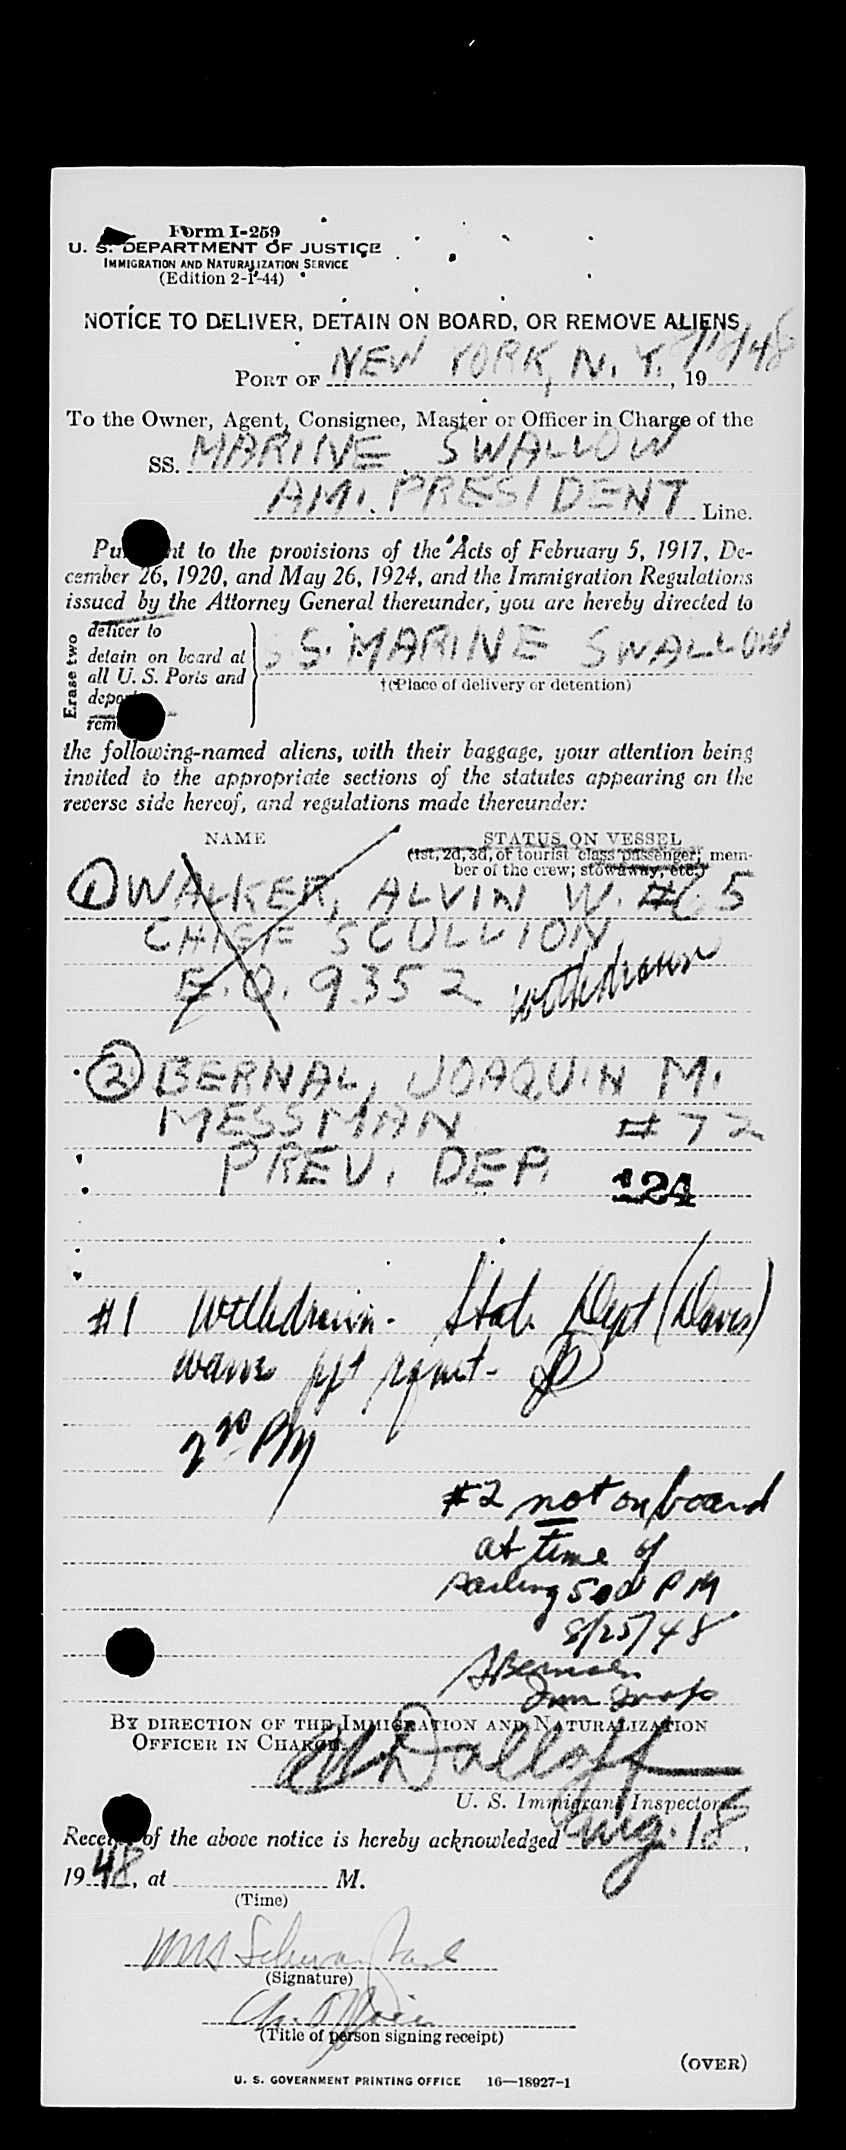 Form I-259
U. S. DEPARTMENT OF JUSTICE
IMMIGRATION AND NATURALIZATION SERVICE
(Edition 2-1-44)
NOTICE TO DELIVER, DETAIN ON BOARD, OR REMOVE ALIENS
PORT OF NEW YORK, N. Y. , 19
To the Owner, Agent, Consignee, Master or Officer in Charge of the
SS. MARINE SWALLOW
AM. PRESIDENT Line.
Pursuant to the provisions of the Acts of February 5, 1917, De-
cember 26, 1920, and May 26, 1924, and the Immigration Regulations
issued by the Attorney General thereunder, you are hereby directed to
Erase two
deliver to
detain on board at
all U. S. Ports and
deport
remove
SS. MARINE SWALLOW
†(Place of delivery or detention)
the following-named aliens, with their baggage, your attention being
invited to the appropriate sections of the statutes appearing on the
reverse side hereof, and regulations made thereunder:
NAME STATUS ON VESSEL
(1st, 2d, 3d, or tourist class passenger; mem-
ber of the crew; stowaway, etc.)
1 WALKER, ALVIN W. #65
CHIEF SCULLION
E.O. 9352 withdrawn
2 BERNAL, JOAQUIN M.
MESSMAN #72
PREV. DEP. 124
#1 Withdrawn - State Dept (Davis)
waives ppt rqmt -
2 30 PM
#2 not on board
at time of
sailing 500 PM
8/25/48
BY DIRECTION OF THE IMMIGRATION AND NATURALIZATION
OFFICER IN CHARGE.
U. S. Immigrant Inspector.
Receipt of the above notice is hereby acknowledged Aug. 18,
19 48, at M.
(Time)
(Signature)
Ch. Officer
(Title of person signing receipt)
(OVER)
U. S. GOVERNMENT PRINTING OFFICE 16—18927-1